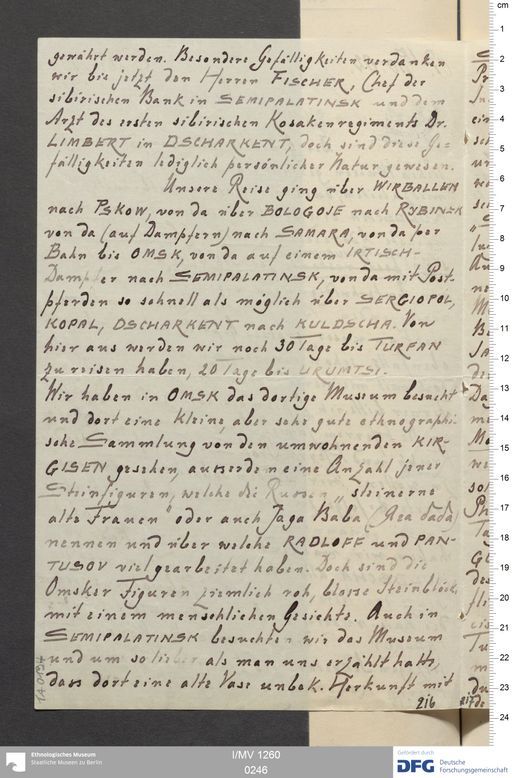 gewährt werden. Besondere Gefälligkeiten verdanken
wir bis jetzt den Herren FISCHER, Chef der
sibirischen Bank in SEMIPALATINSK und dem
Arzt des ersten sibirischen Kosakenregiments Dr.
LIMBERT in DSCHARKENT, doch sind diese Ge=
fälligkeiten lediglich persönlicher Natur gewesen.
Unsere Reise ging über WIRBALLEN
nach PSKOW, von da über BOLOGOJE nach RYBINSK
von da (auf Dampfern) nach SAMARA, von da per
Bahn bis OMSK, von da auf einem IRTISCH-
Dampfer nach SEMIPALATINSK, von da mit Post-
pferden so schnell als möglich über SERGIOPOL,
KOPAL, DSCHARKENT nach KULDSCHA. Von
hier aus werden wir noch 30 Tage bis TURFAN
zu reisen haben, 20 Tage bis URUMTSI.
Wir haben in OMSK das dortige Museum besucht
und dort eine kleine, aber sehr gute ethnographi-
sche Sammlung von den umwohnenden KIR-
GISEN gesehen, ausserdem eine Anzahl jener
Steinfiguren, welche die Russen „steinerne
alte Frauen" oder auch Jaga Baba
nennen und über welche RADLOFF und PAN-
TUSOV viel gearbeitet haben. Doch sind die
Omsker Figuren ziemlich roh, blosse Steinblöcke
mit einem menschlichen Gesichte. Auch in
SEMIPALATINSK besuchten wir das Museum
und um so lieber als man uns erzählt hatte,
dass dort eine alte Vase unbek. Herkunft mit
216
217
1A 0194
cm
1
2
3
4
5
6
7
8
9
10
11
12
13
14
15
16
17
18
19
20
21
22
23
24
Ethnologisches Museum
Staatliche Museen zu Berlin
I/MV 1260
0246
Gefördert durch
DFG Deutsche
Forschungsgemeinschaft